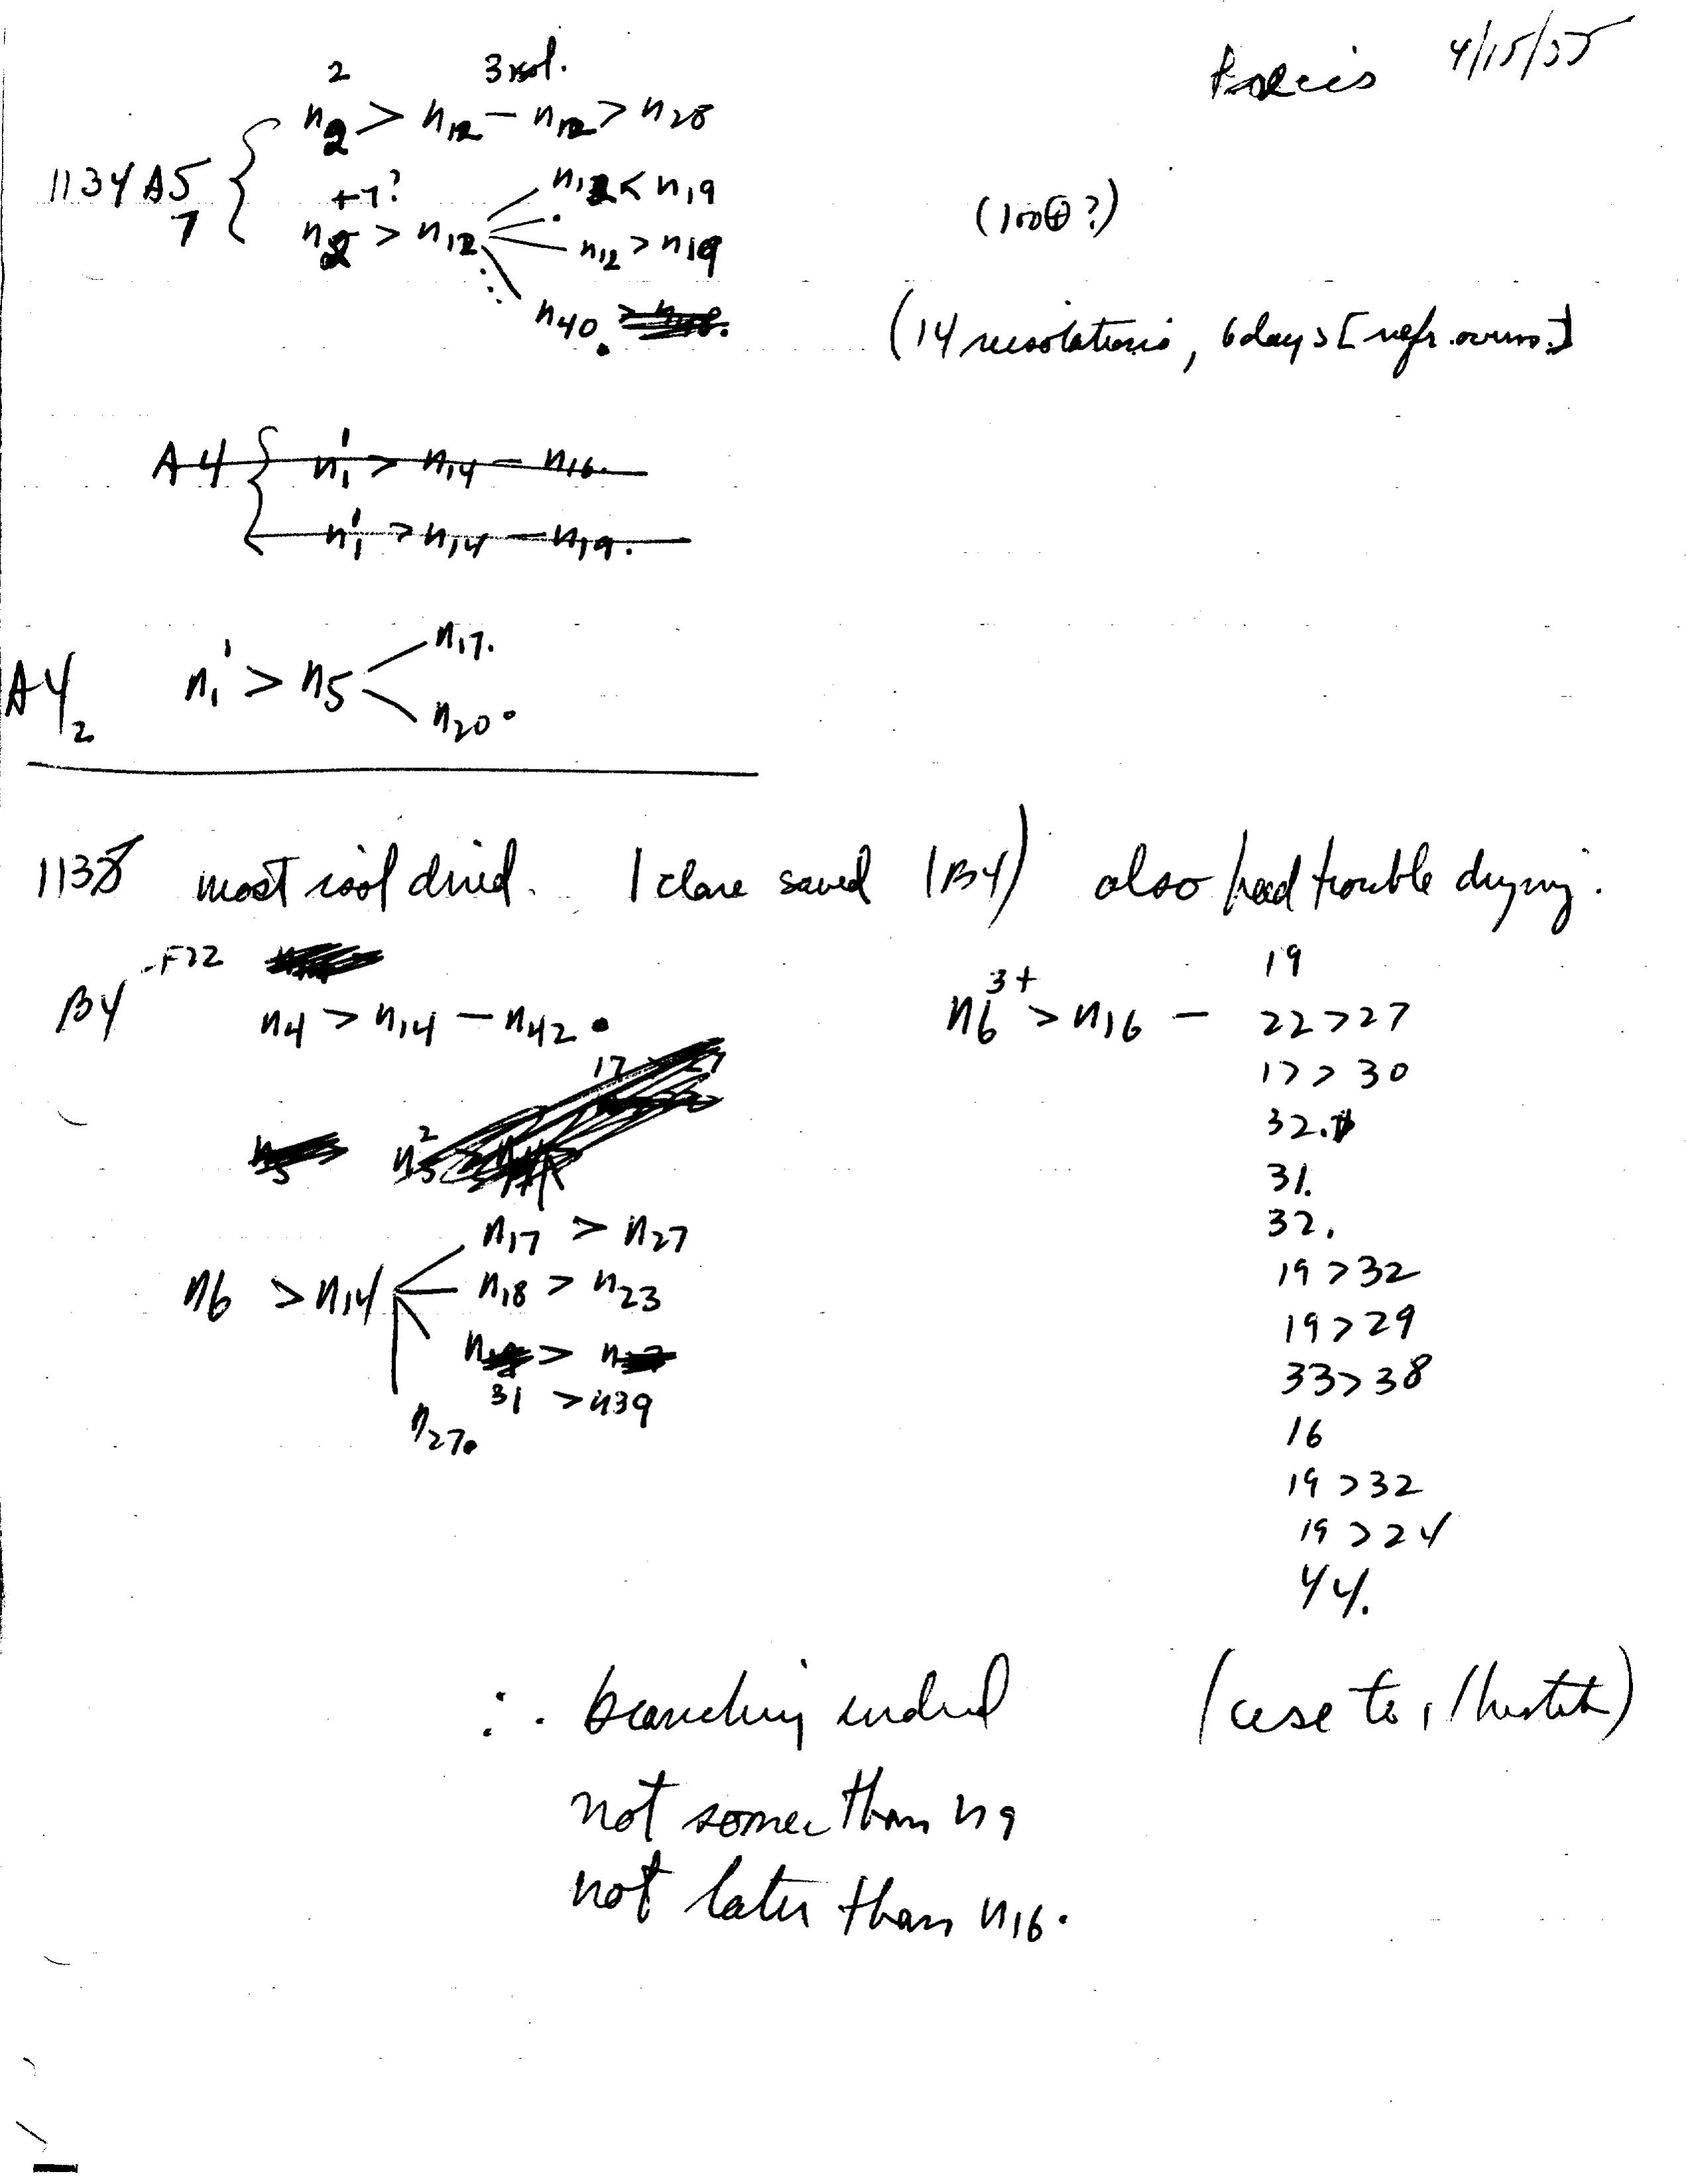 4/15/55
2 3 isol.
n2 > n12 – n12 > n28
1134 A5 7
+7?
n12 < n19
n2 > n12
n12 > n19
(100⊕?)
n40.
(14 reisolations, 6 days [refr. overn.]
A4 n1' > n14 – n16.
n1' > n14 – n19.
A4₂ n1' > n5
n17.
n20.
1138 most isol died. 1 clone saved (B4) also had trouble drying.
B4 F22
n4 > n14 – n42.
n6 > n14
n17 > n27
n18 > n23
31 > n39
n27.
n6 3+ > n16 –
19
22 > 27
17 > 30
32.
31.
32.
19 > 32
19 > 29
33 > 38
16
19 > 32
19 > 24
44.
∴ branching indeed
not sooner than n9
not later than n16.